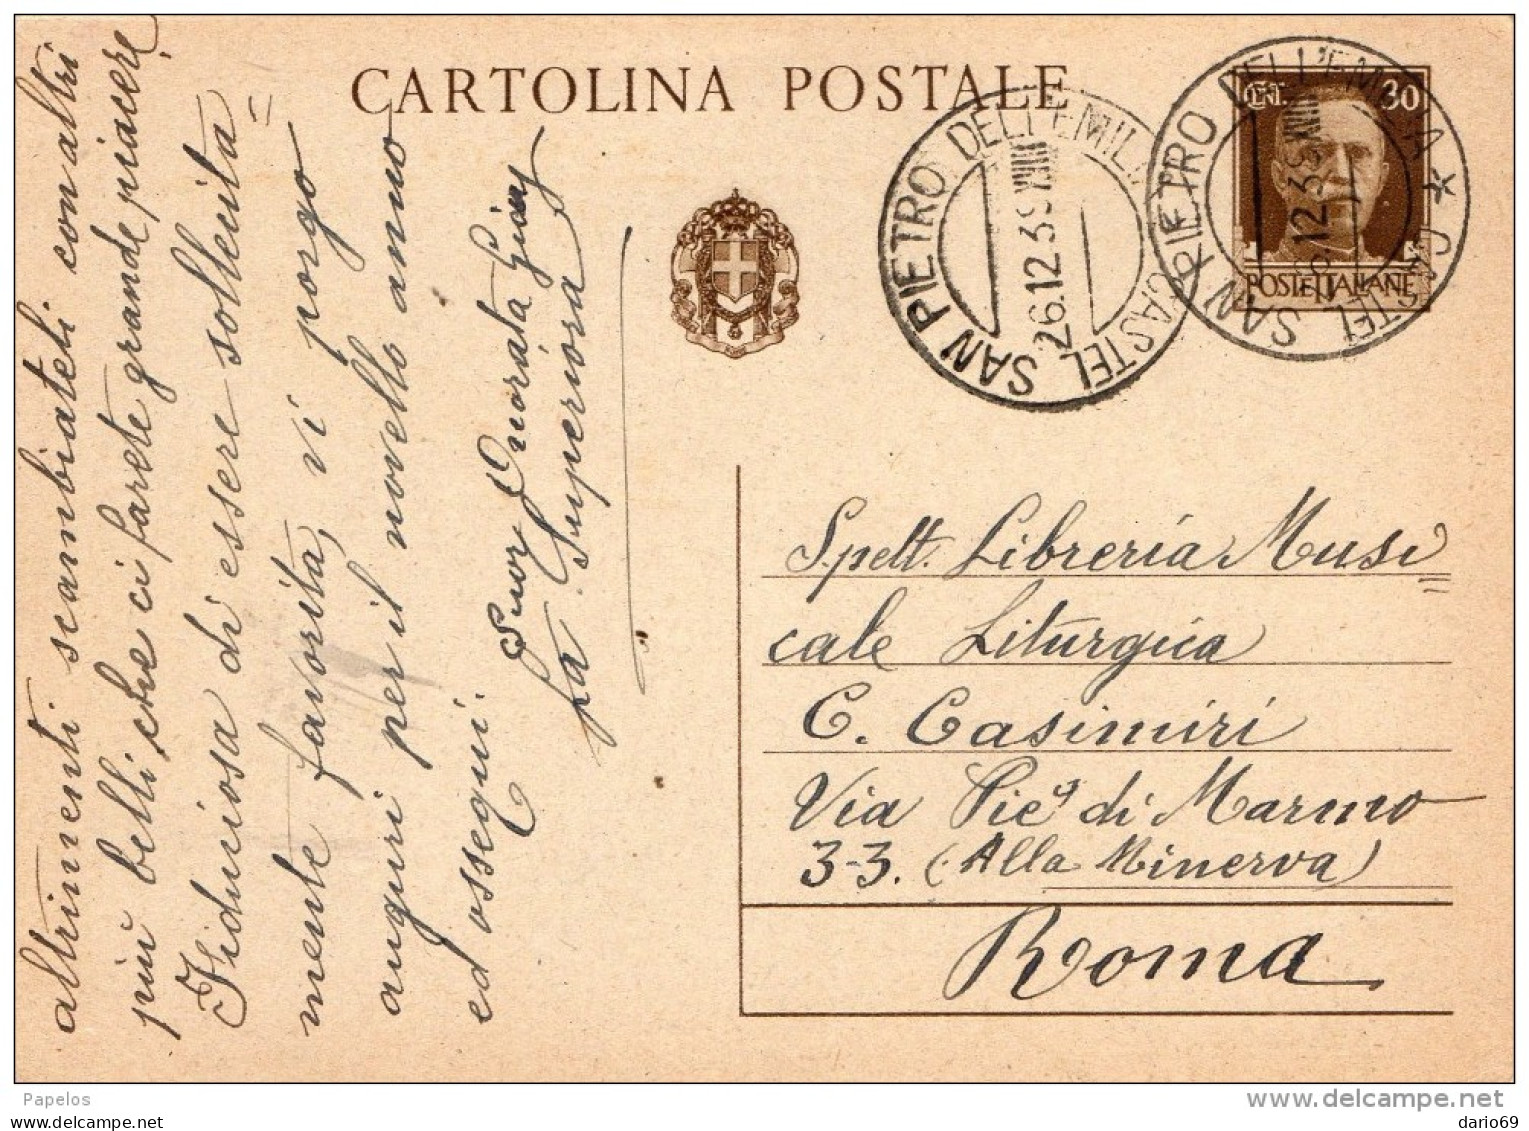 CARTOLINA POSTALE
CENT. 30
POSTE ITALIANE
CASTEL SAN PIETRO DELL'EMILIA
26.12.39 XVIII
CASTEL SAN PIETRO DELL'EMILIA *
26.12.39 XVIII
altrimenti scambiateli con altri
più belli, che ci farete grande piacere
Fiduciosa di essere sollecita=
mente favorita, vi porgo
auguri per il novello anno
ed ossequi.
Suor Onorata
La Superiora
Spett. Libreria Musi=
cale Liturgica
C. Casimiri
Via Pie' di Marmo
3-3. (Alla Minerva)
Roma
Papelos
www.delcampe.net
dario69